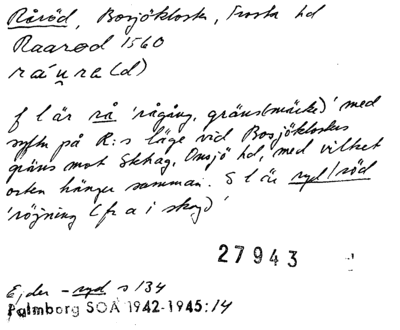 Råröd, Bosjökloster, Frosta hd
Raarød 1560
rá̀u̯ra(d)
f l är rå 'rågång, gräns(märke)' med
syftn på R:s läge vid Bosjöklosters
gräns mot Sthag, Onsjö hd, med vilket
orten hänger samman. S l är ryd/röd
'röjning (fr a i skog)'
27943
Ejder - ryd s 134
Palmborg SOÅ 1942-1945:14